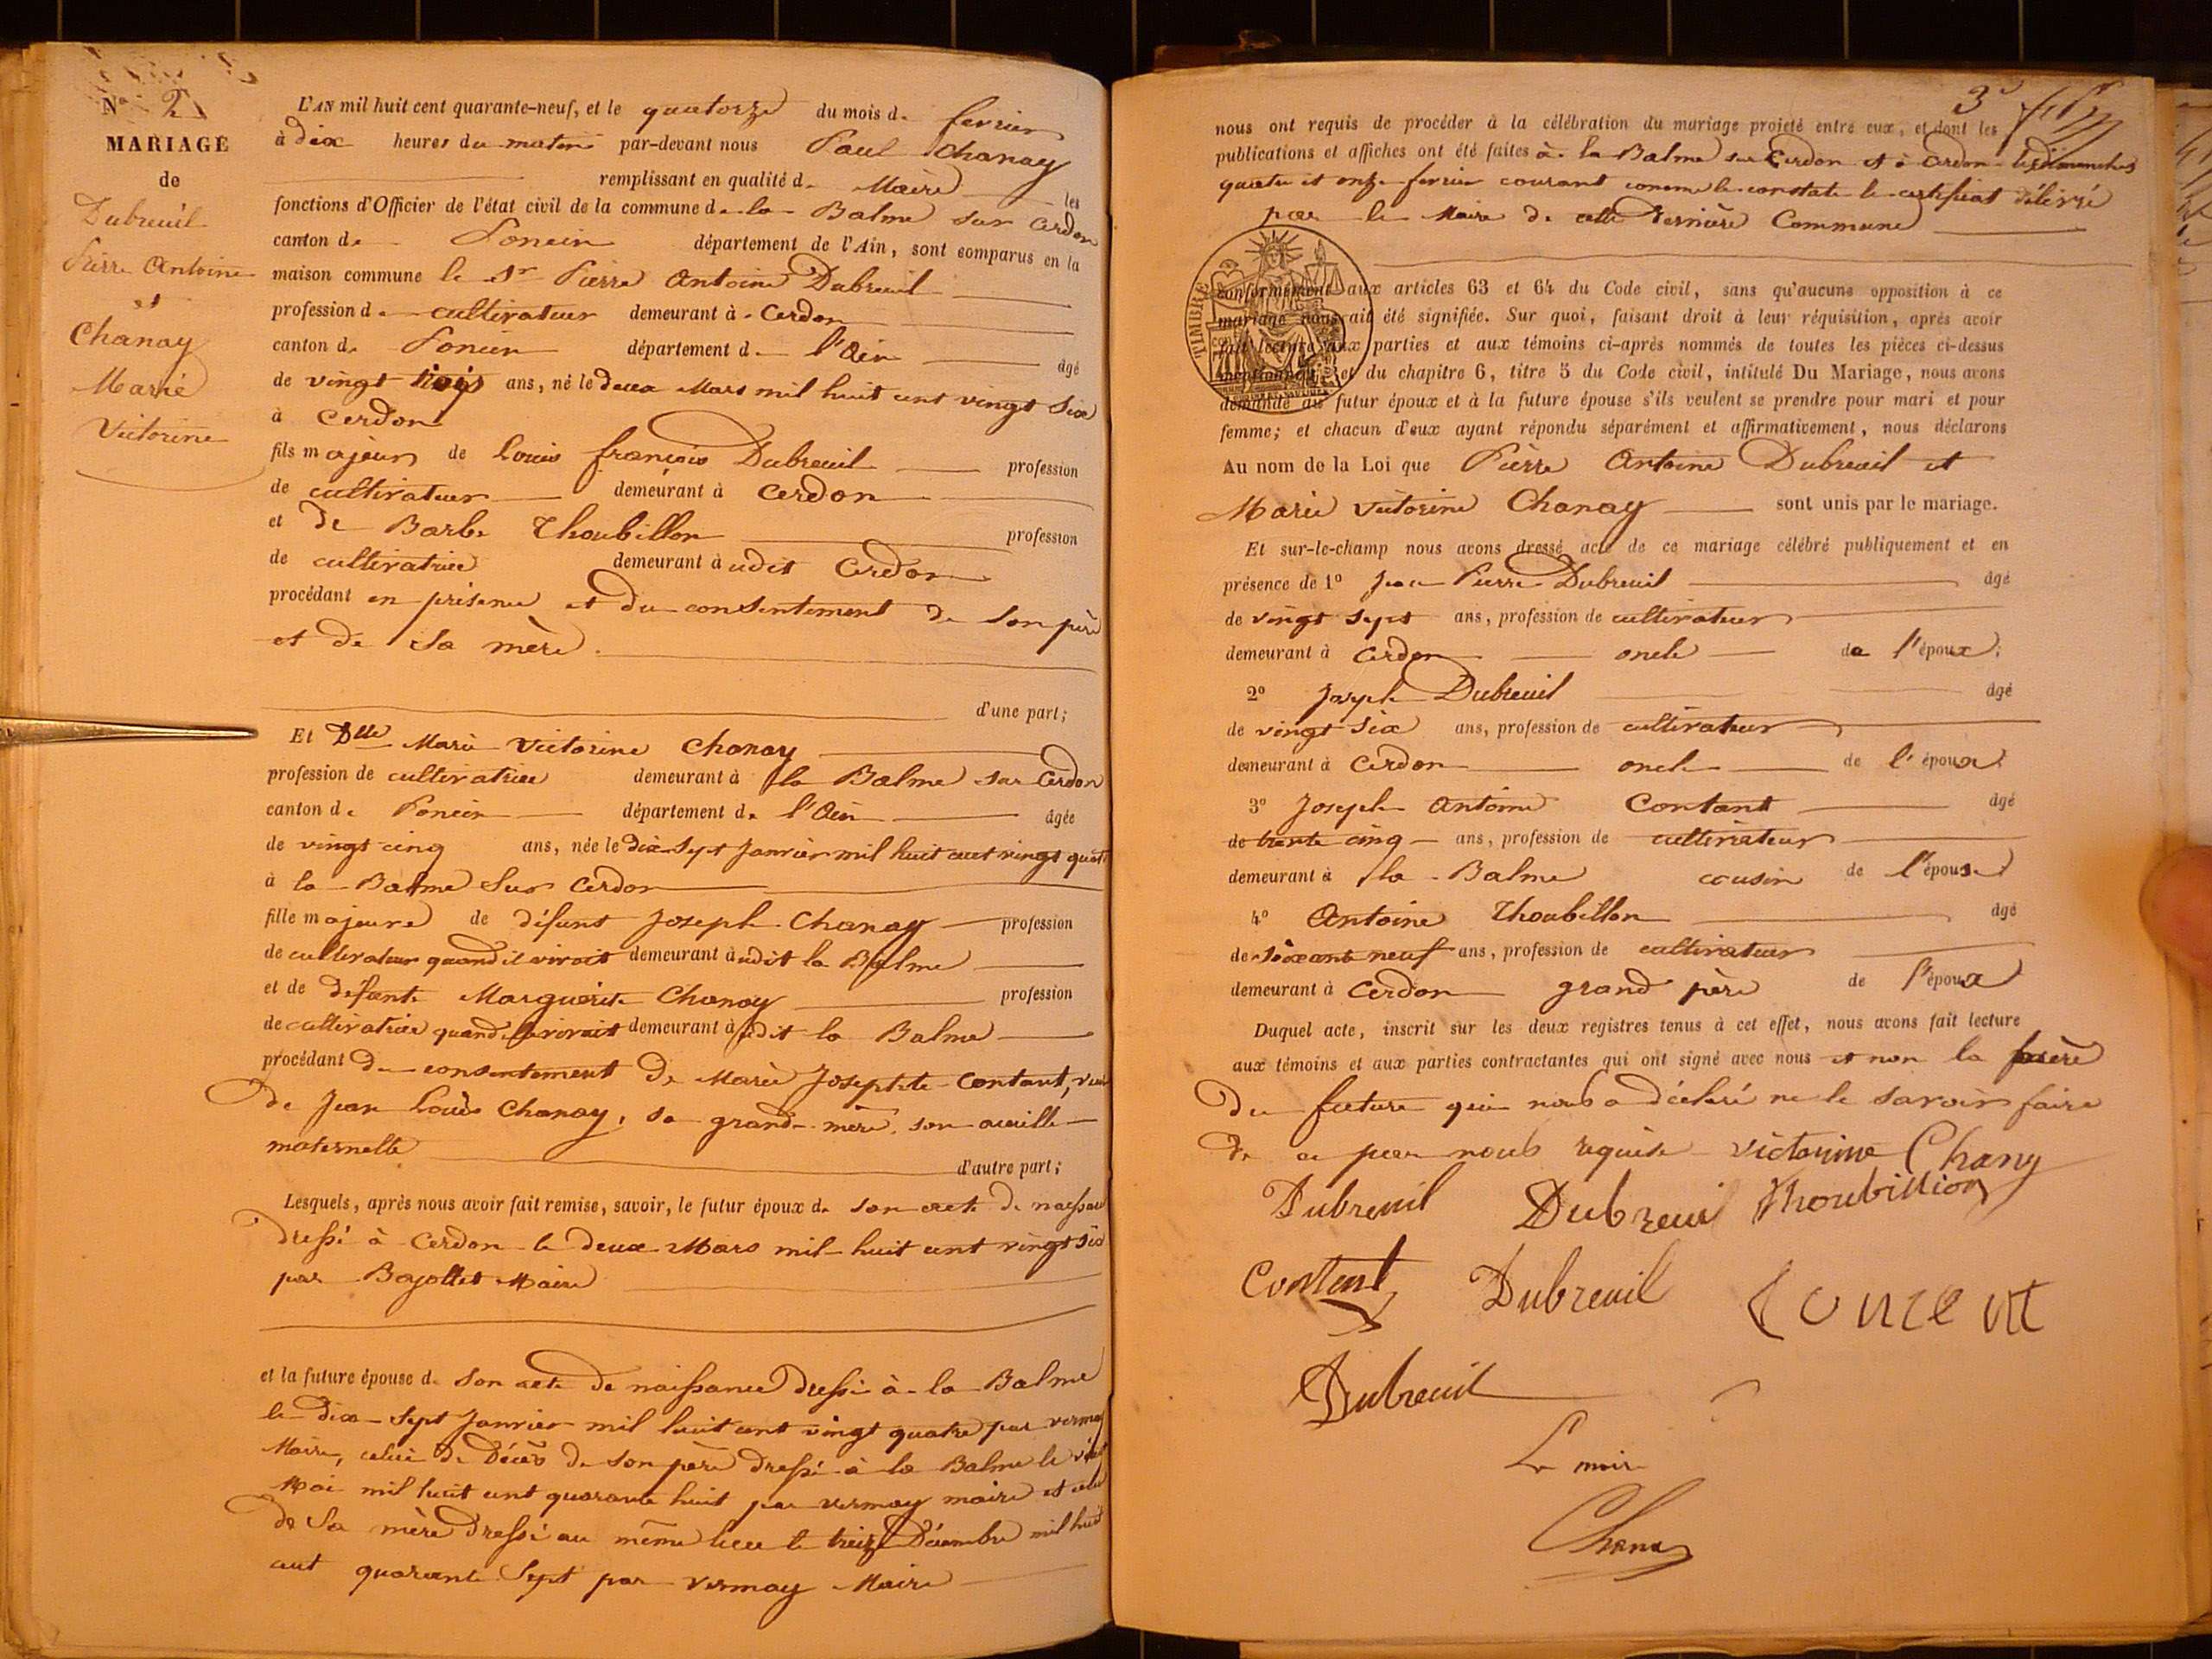 N° 2
MARIAGE
de
Dubreuil
Pierre Antoine
et
Chanay
Marie
Victorine
L'AN mil huit cent quarante-neuf, et le quatorze du mois de fevrier
à dix heures du matin par-devant nous Paul Chanay
remplissant en qualité de Maire les
fonctions d'Officier de l'état civil de la commune de la Balme sur Cerdon
canton de Poncin département de l'Ain, sont comparus en la
maison commune le Sr Pierre Antoine Dubreuil
profession de cultivateur demeurant à Cerdon
canton de Poncin département de l'Ain âgé
de vingt trois ans, né le deux Mars mil huit cent vingt Six
à Cerdon
fils majeur de Louis françois Dubreuil profession
de cultivateur demeurant à Cerdon
et de Barbe Thoubillon profession
de cultivatrice demeurant à udit Cerdon
procédant en présence et du consentement de Son père
et de Sa mère.
d'une part;
Et Dlle Marie Victorine Chanay
profession de cultivatrice demeurant à la Balme sur Cerdon
canton de Poncin département de l'Ain âgée
de vingt cinq ans, née le dix Sept Janvier mil huit cent vingt quat
à la Balme Sur Cerdon
fille majeure de défunt Joseph Chanay profession
de cultivateur quand il vivait demeurant à udit la Balme
et de défunte Marguerite Chanay profession
de cultivatrice quand vivait demeurant à udit la Balme
procédant du consentement de Marie Josephte Contant,
de Jean Louis Chanay, sa grand-mère, son aieulle
maternelle
d'autre part;
Lesquels, après nous avoir fait remise, savoir, le futur époux de son acte de naissan
dressé à Cerdon le deux Mars mil huit cent vingt Six
par Bajollet Maire
et la future épouse de Son acte de naissance dressé à la Balme
le dix-Sept Janvier mil huit cent vingt quatre par vermay
Maire, celui de Décès de Son père dressé à la Balme le
Mai mil huit cent quarante huit par vermay maire et
de Sa mère dressé au même lieu le treize Décembre mil huit
cent quarante Sept par vermay Maire
3e
nous ont requis de procéder à la célébration du mariage projeté entre eux, et dont les
publications et affiches ont été faites à la Balme sur Cerdon et à Cerdon les dimanches
quatre et onze fevrier courant comme le constate le certificat délivré
par le Maire de cette dernière Commune
TIMBRE
conformément aux articles 63 et 64 du Code civil, sans qu'aucune opposition à ce
mariage nous ait été signifiée. Sur quoi, faisant droit à leur réquisition, après avoir
fait lecture aux parties et aux témoins ci-après nommés de toutes les pièces ci-dessus
mentionnées, et du chapitre 6, titre 5 du Code civil, intitulé Du Mariage, nous avons
demandé au futur époux et à la future épouse s'ils veulent se prendre pour mari et pour
femme; et chacun d'eux ayant répondu séparément et affirmativement, nous déclarons
Au nom de la Loi que Pierre Antoine Dubreuil et
Marie Victorine Chanay sont unis par le mariage.
Et sur-le-champ nous avons dressé acte de ce mariage célébré publiquement et en
présence de 1° Jean Pierre Dubreuil âgé
de vingt Sept ans, profession de cultivateur
demeurant à Cerdon oncle de l'époux;
2° Joseph Dubreuil âgé
de vingt Six ans, profession de cultivateur
demeurant à Cerdon oncle de l'époux;
3° Joseph Antoine Contant âgé
de trente cinq ans, profession de cultivateur
demeurant à la Balme cousin de l'épouse
4° Antoine Thoubillon âgé
de Soixante neuf ans, profession de cultivateur
demeurant à Cerdon grand père de l'époux
Duquel acte, inscrit sur les deux registres tenus à cet effet, nous avons fait lecture
aux témoins et aux parties contractantes qui ont signé avec nous et non la mère
du future qui nous a déclaré ne le savoir faire
de ce par nous requise Victorine Chany
Dubreuil Dubreuil Thoubillion
Contant Dubreuil
Dubreuil
Le maire
Chanay